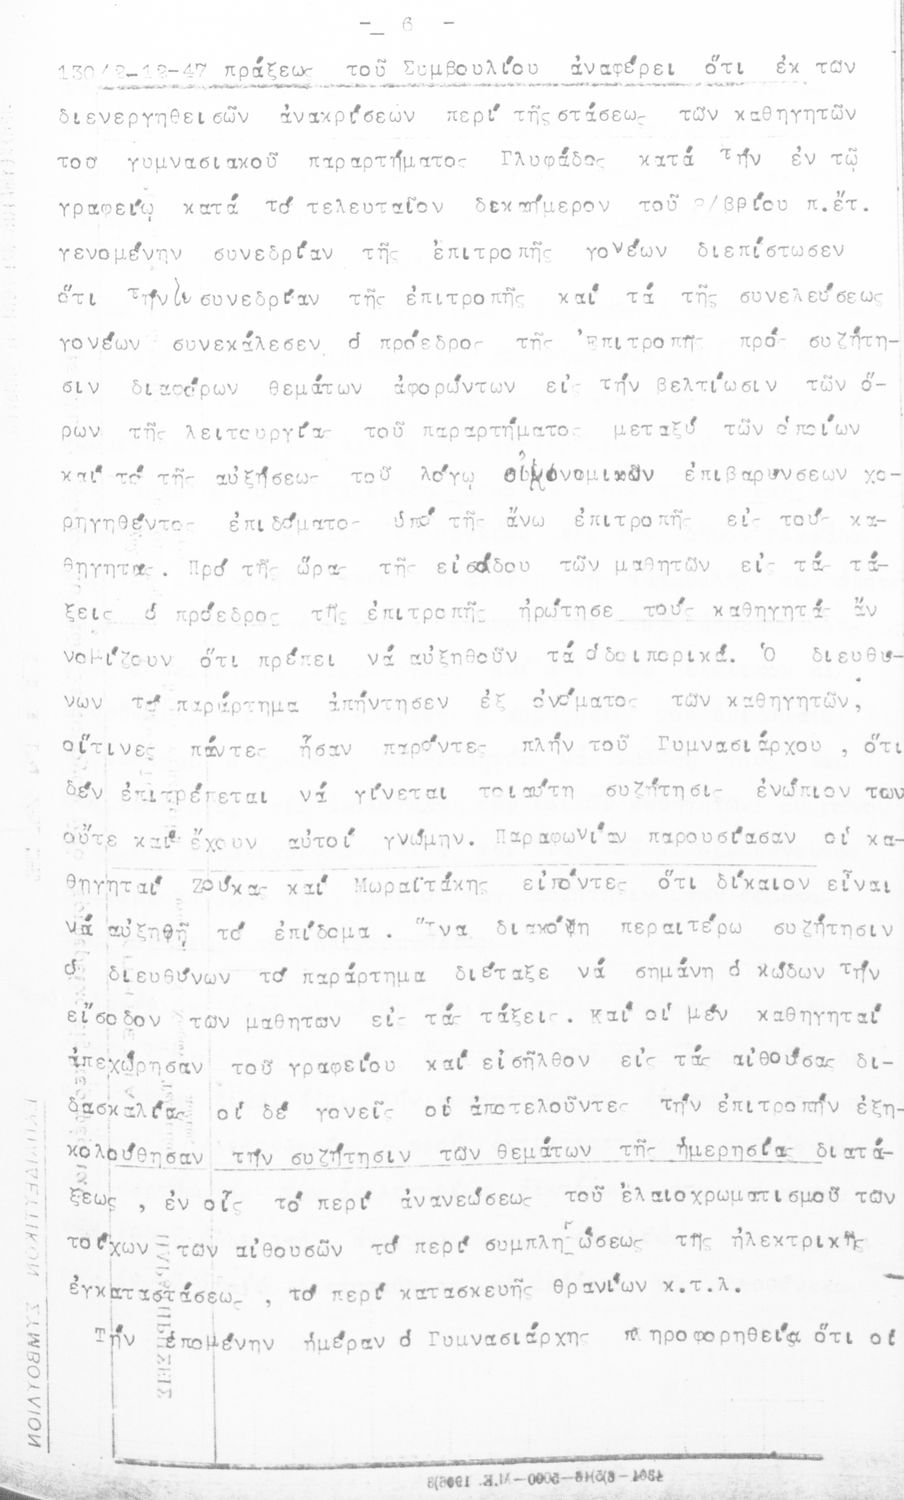 - 6 -
130/2-12-47 πράξεως τοῦ Συμβουλίου ἀναφέρει ὅτι ἐκ τῶν
διενεργηθεισῶν ἀνακρίσεων περί τῆς στάσεως τῶν καθηγητῶν
τοσ γυμνασιακοῦ παραρτήματος Γλυφάδος κατά τήν ἐν τῷ
γραφείῳ κατά τό τελευταῖον δεκαήμερον τοῦ /βρίου π.ἔτ.
γενομένην συνεδρίαν τῆς ἐπιτροπῆς γονέων διεπίστωσεν
ὅτι τήν συνεδρίαν τῆς ἐπιτροπῆς καί τά τῆς συνελεύσεως
γονέων συνεκάλεσεν ὁ πρόεδρος τῆς Ἐπιτροπῆς πρός συζήτη-
σιν διαφόρων θεμάτων ἀφορώντων εἰς τήν βελτίωσιν τῶν ὅ-
ρων τῆς λειτουργίας τοῦ παραρτήματος μεταξύ τῶν ὁποίων
καί τό τῆς αὐξήσεως τοῦ λόγῳ οἰκονομικῶν ἐπιβαρυνσεων χο-
ρηγηθέντος ἐπιδόματος ὑπό τῆς ἄνω ἐπιτροπῆς εἰς τούς κα-
θηγητας. Πρό τῆς ὥρας τῆς εἰσόδου τῶν μαθητῶν εἰς τάς τά-
ξεις ὁ πρόεδρος τῆς ἐπιτροπῆς ἠρώτησε τούς καθηγητάς ἄν
νομίζουν ὅτι πρέπει νά αὐξηθοῦν τά ὁδοιπορικά. Ὁ διευθύ-
νων τό παράρτημα ἀπήντησεν ἐξ ὀνόματος τῶν καθηγητῶν,
οἵτινες πάντες ἦσαν παρόντες πλήν τοῦ Γυμνασιάρχου , ὅτι
δέν ἐπιτρέπεται νά γίνεται τοιαύτη συζήτησις ἐνώπιον των
οὔτε καί ἔχουν αὐτοί γνώμην. Παραφωνίαν παρουσίασαν οἱ κα-
θηγηταί Ζούκας καί Μωραϊτάκης εἰπόντες ὅτι δίκαιον εἶναι
νά αὐξηθῇ τό ἐπίδομα . Ἵνα διακόψῃ περαιτέρω συζήτησιν
ὁ διευθύνων τό παράρτημα διέταξε νά σημάνη ὁ κώδων τήν
εἴσοδον τῶν μαθητων εἰς τάς τάξεις. Καί οἱ μέν καθηγηταί
ἀπεχώρησαν τοῦ γραφείου καί εἰσῆλθον εἰς τάς αἰθούσας δι-
δασκαλίας οἱ δέ γονεῖς οἱ ἀποτελοῦντες τήν ἐπιτροπήν ἐξη-
κολούθησαν τήν συζήτησιν τῶν θεμάτων τῆς ἡμερησίας διατά-
ξεως , ἐν οἷς τό περί ἀνανεώσεως τοῦ ἐλαιοχρωματισμοῦ τῶν
τοίχων τῶν αἰθουσῶν τό περί συμπληρώσεως τῆς ἠλεκτρικῆς
ἐγκαταστάσεως , τό περί κατασκευῆς θρανίων κ.τ.λ.
Τήν ἑπομένην ἡμέραν ὁ Γυμνασιάρχης πληροφορηθείς ὅτι οἱ